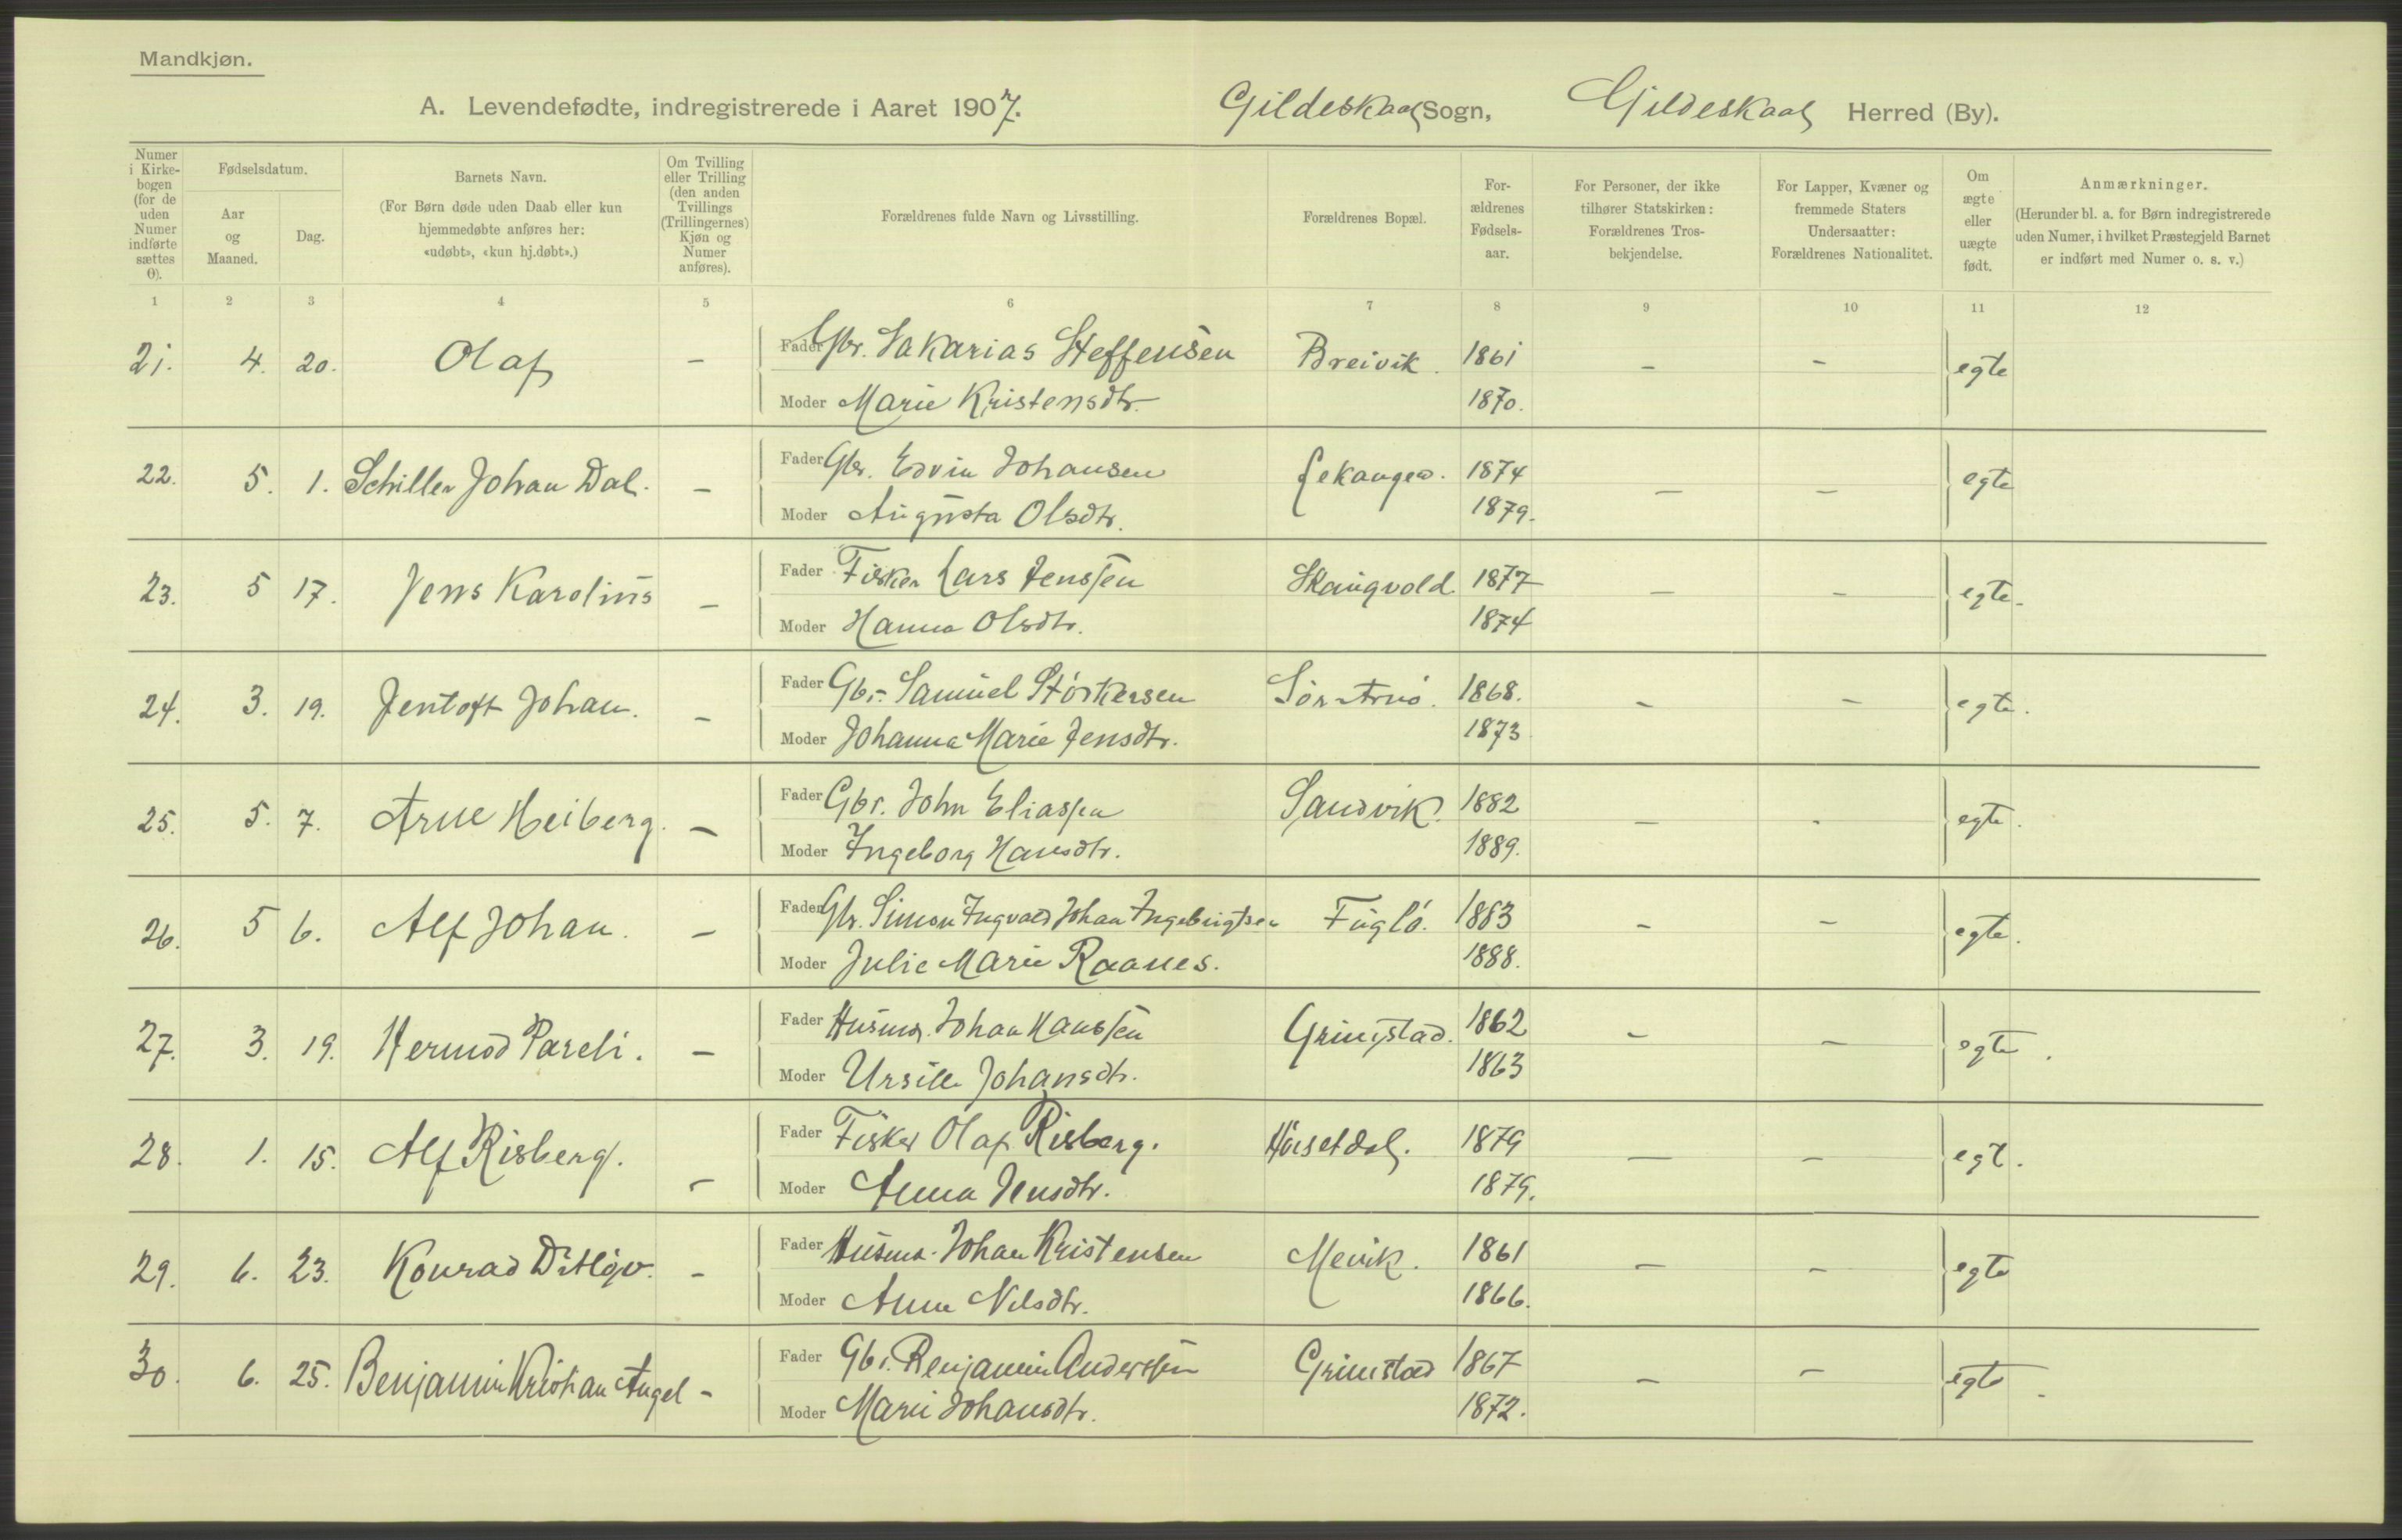 Mandkjøn.
A. Levendefødte, indregistrerede i Aaret 1907. Gildeskaal Sogn, Gildeskaal Herred (By).
Numer i Kirkebogen (for de uden Numer indførte sættes 0).
Fødselsdatum.
Aar og Maaned.
Dag.
Barnets Navn.
(For Børn døde uden Daab eller kun hjemmedøbte anføres her: «udøbt», «kun hj.døbt».)
Om Tvilling eller Trilling (den anden Tvillings (Trillingernes) Kjøn og Numer anføres).
Forældrenes fulde Navn og Livsstilling.
Forældrenes Bopæl.
Forældrenes Fødselsaar.
For Personer, der ikke tilhører Statskirken: Forældrenes Trosbekjendelse.
For Lapper, Kvæner og fremmede Staters Undersaatter: Forældrenes Nationalitet.
Om ægte eller uægte født.
Anmærkninger.
(Herunder bl. a. for Børn indregistrerede uden Numer, i hvilket Præstegjeld Barnet er indført med Numer o. s. v.)
1 2 3 4 5 6 7 8 9 10 11 12
21. 4. 20. Olaf – Fader Gbr. Sakarias Steffensen Breivik. 1861 – – egte
Moder Marie Kristensdtr. 1870.
22. 5. 1. Schiller Johan Dal. – Fader Gbr. Edvin Johansen 1874 – – egte
Moder Augusta Olsdtr. 1879.
23. 5 17. Jens Karolius – Fader Fisker Lars Jenssen Skaugvold 1877 – – egte.
Moder Hanna Olsdtr. 1874
24. 3. 19. Jentoft Johan. – Fader Gbr. Samuel Störkersen Sör-Arnö. 1868. – – egte.
Moder Johanna Marie Jensdtr. 1873
25. 5. 7. Arne Heiberg. – Fader Gbr. John Eliassen Sandvik. 1882 – - egte.
Moder Ingeborg Hansdtr. 1889.
26. 5 6. Alf Johan. – Fader Gbr. Simon Ingvald Johan Ingebrigtsen Fuglö. 1883 – – egte.
Moder Julie Marie Raanes. 1888.
27. 3. 19. Hermod Pareli. – Fader Husmd. Johan Hanssen Grimstad. 1862 – – egte.
Moder Ursille Johansdtr. 1863
28. 1. 15. Alf Risberg. – Fader Fisker Olaf Risberg. Höisetdal. 1879 – – egt.
Moder Anna Jensdtr. 1879.
29. 6. 23. Konrad Ditlev. – Fader Husmd. Johan Kristensen Mevik. 1861 – – egte
Moder Anne Nilsdtr. 1866.
30. 6. 25. Benjamin Kristian Angel – Fader Gbr. Benjamin Anderssen Grimstad 1867 – – egte
Moder Marie Johansdtr. 1872.